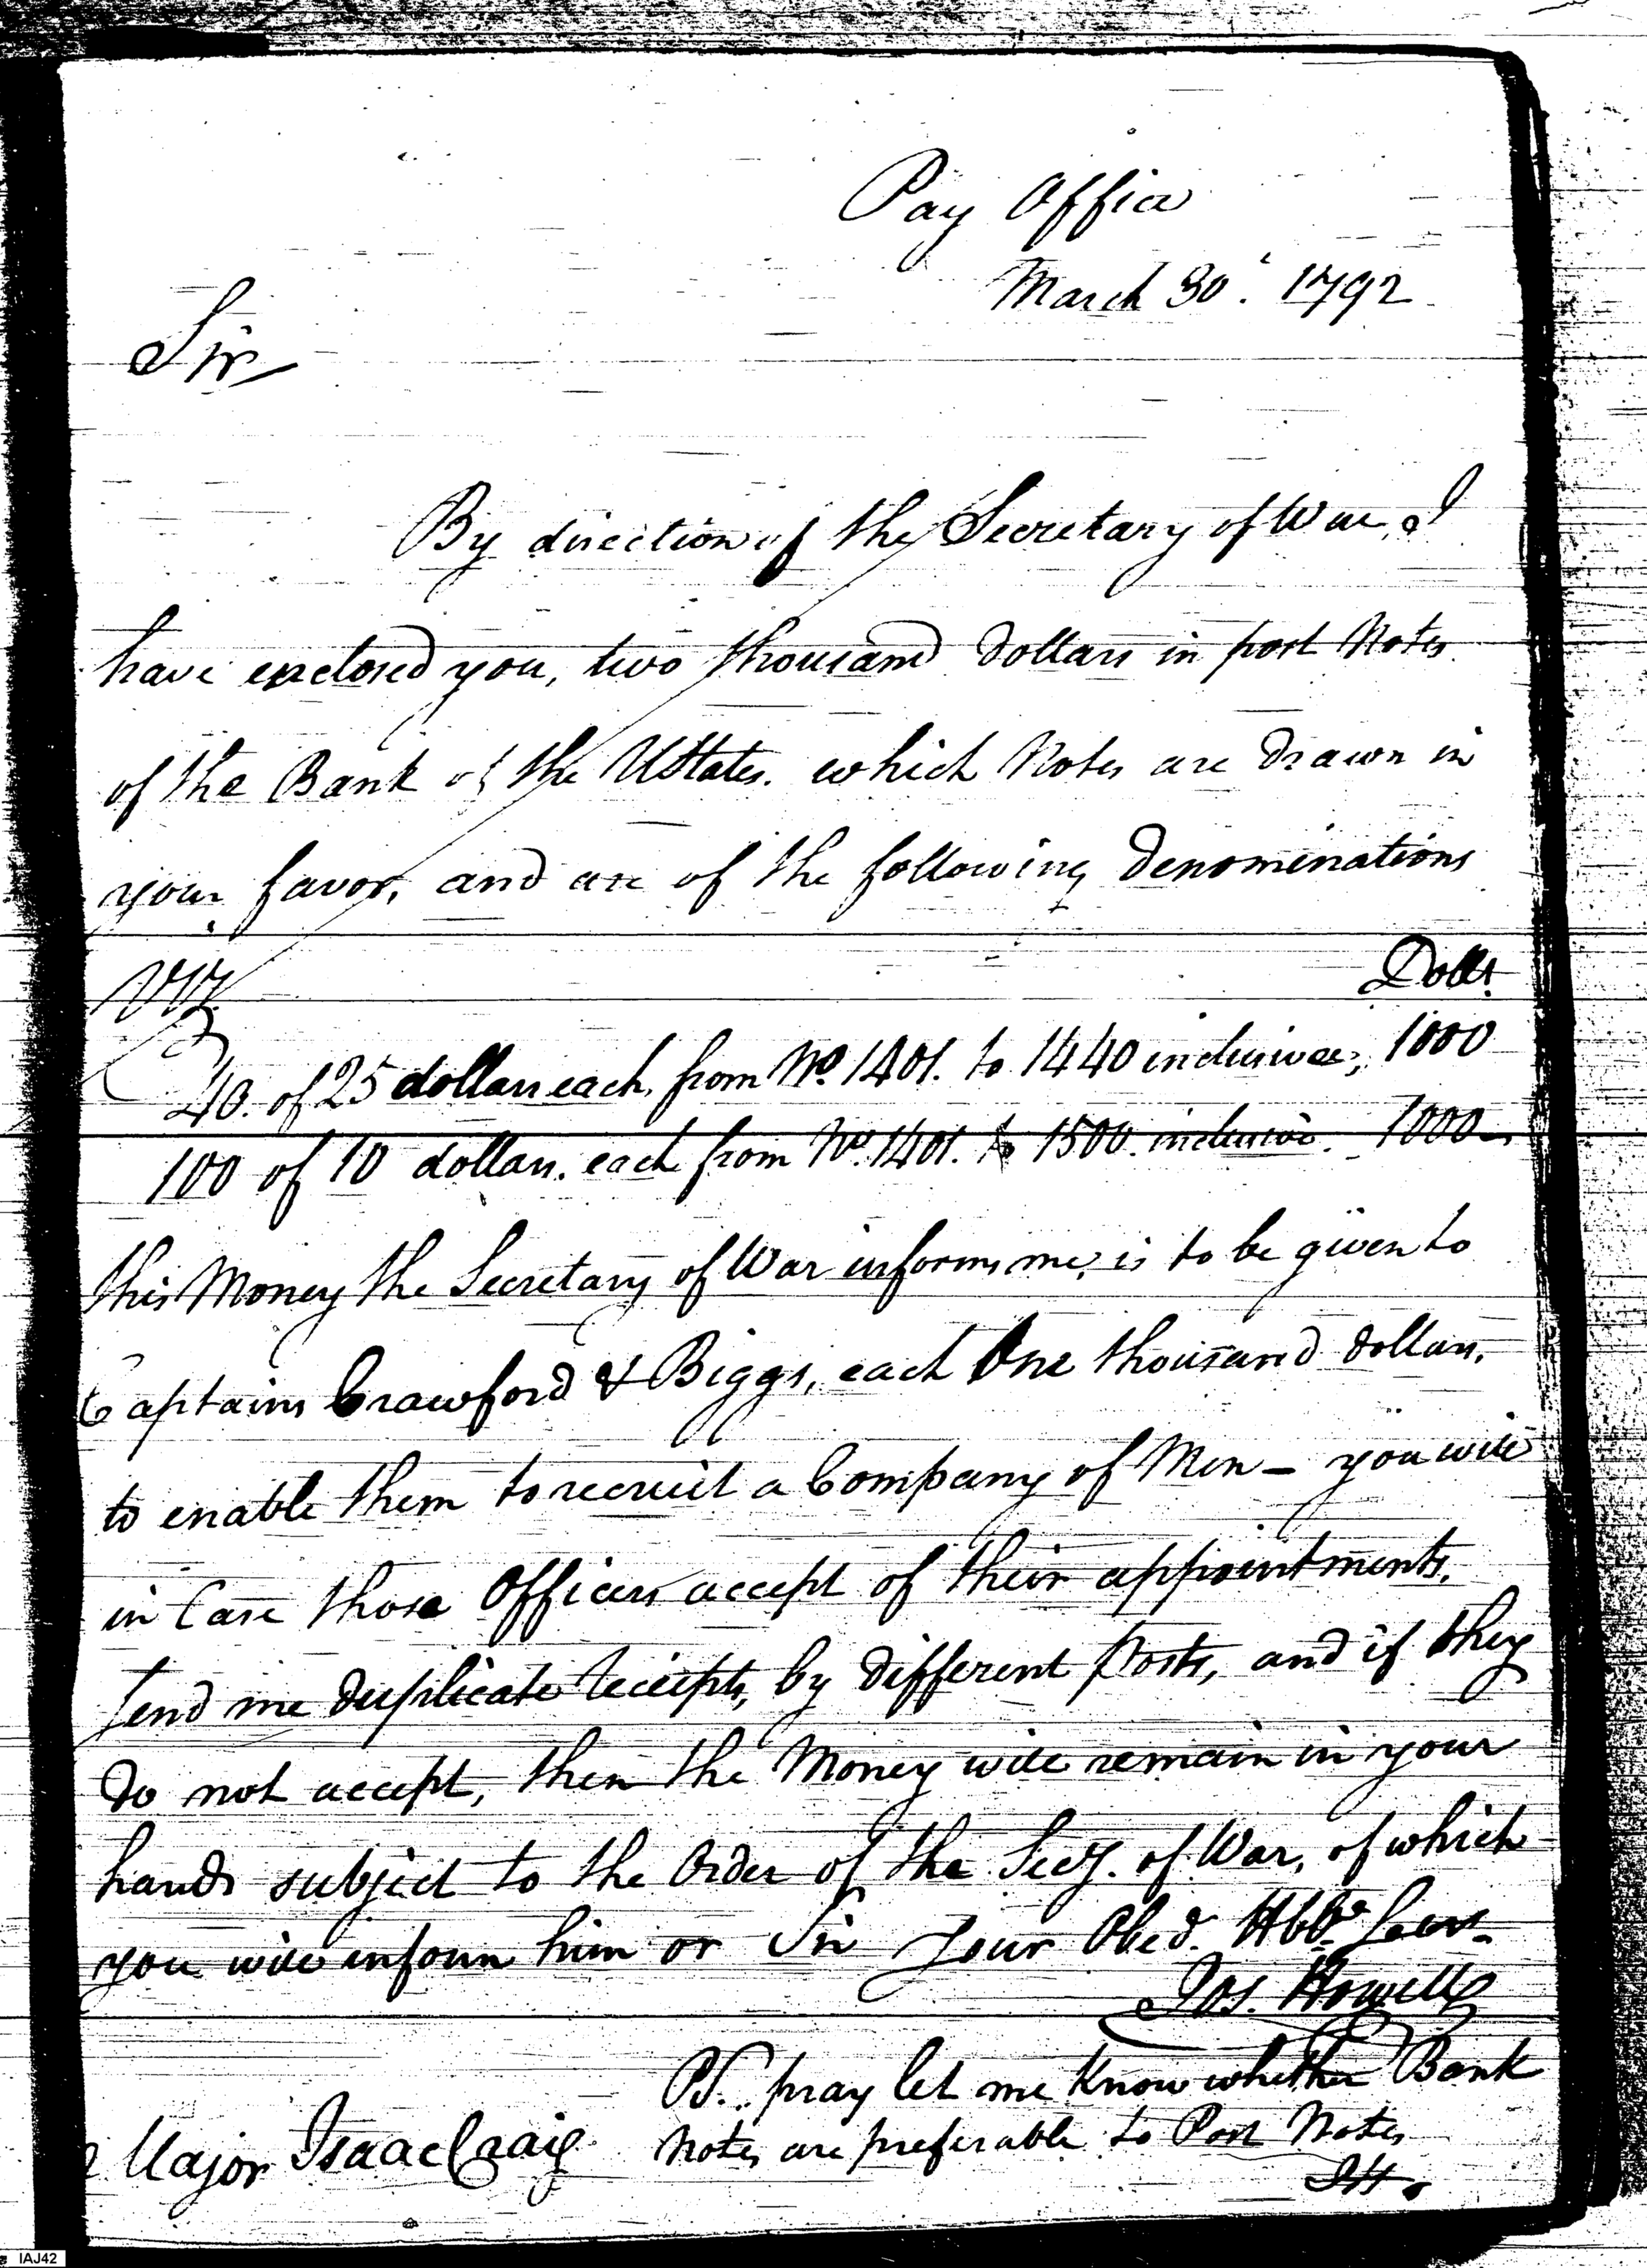 Pay Office
March 30. 1792
Sir
By direction of the Secretary of War, I
have enclosed you, two thousand dollars in post Notes
of the Bank of the UStates. which Notes are drawn in
your favor, and are of the following denominations
Viz
Dolls.
40. of 25 dollars each, from No. 1401. to 1440 inclusive, 1000
100 of 10 dollars. each from No. 1401. to 1500. inclusive. 1000
this Money the Secretary of War informs me, is to be given to
Captains Crawford & Biggs, each One thousand dollars.
to enable them to recruit a Company of Men - you will
in Case those Officers accept of their appointments.
send me duplicate receipts, by different Posts, and if they
do not accept, then the Money will remain in your
hands subject to the Order of the Secy. of War, of which
you will inform him or Sir Your Obed. Hble Serv.
Jos. Howell
PS. pray let me know whether Bank
Notes are preferable to Post Notes
JH.
Major Isaac Craig
IAJ42